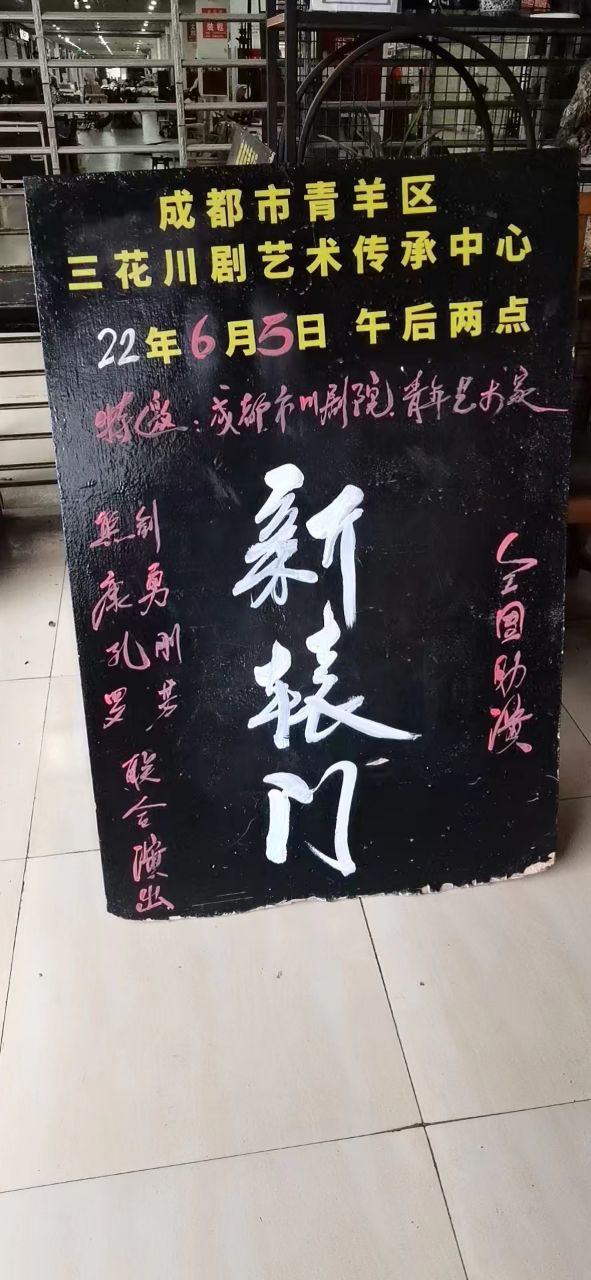 成都市青羊区
三花川剧艺术传承中心
22年6月5日 午后两点
特邀:成都市川剧院青年艺术家
新辕门
全团助演
熊剑
康勇
孔刚
罗
联合演出